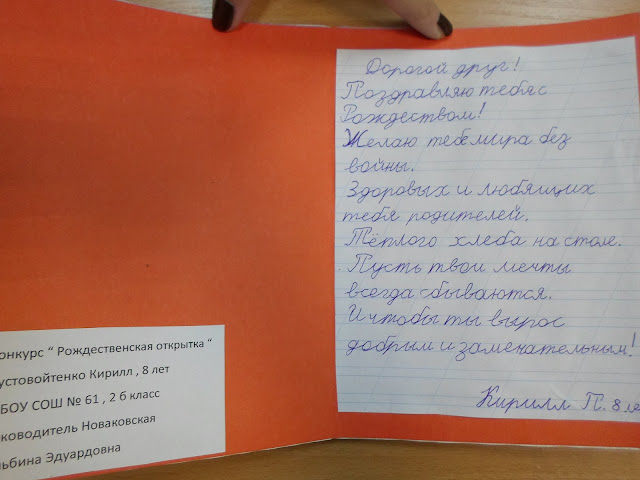 онкурс “ Рождественская открытка “
устовойтенко Кирилл , 8 лет
БОУ СОШ № 61 , 2 б класс
ководитель Новаковская
ьбина Эдуардовна
Дорогой друг!
Поздравляю тебя с
Рождеством!
Желаю тебе мира без
войны.
Здоровых и любящих
тебя родителей.
Тёплого хлеба на столе.
Пусть твои мечты
всегда сбываются.
И чтобы ты вырос
добрым и замечательным!
Кирилл П. 8 ле